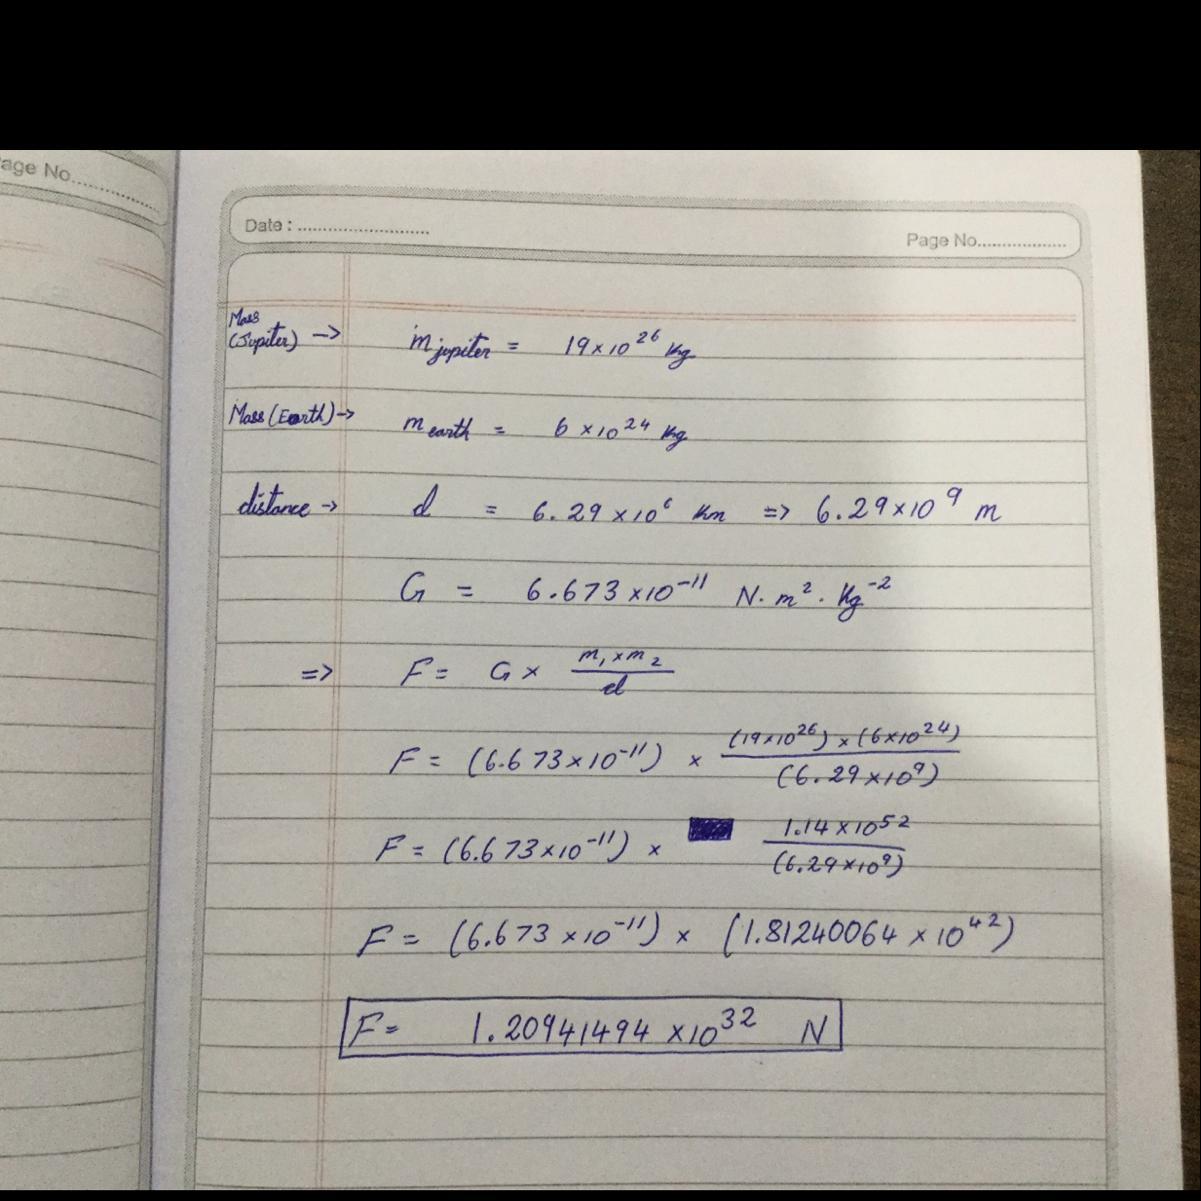 age No..................
Date : ..............................
Page No...................
Mass (Jupiter) → m jupiter = 19×10²⁶ Kg
Mass (Earth) → m earth = 6 ×10²⁴ Kg
distance → d = 6.29 ×10⁶ Km => 6.29×10⁹ m
G = 6.673 ×10⁻¹¹ N. m². Kg⁻²
=> F = G × m₁ × m₂ / d
F = (6.673×10⁻¹¹) × (19×10²⁶) × (6×10²⁴) / (6.29 ×10⁹)
F = (6.673×10⁻¹¹) × 1.14 ×10⁵² / (6.29×10⁹)
F = (6.673 ×10⁻¹¹) × (1.81240064 × 10⁴²)
F = 1.20941494 ×10³² N